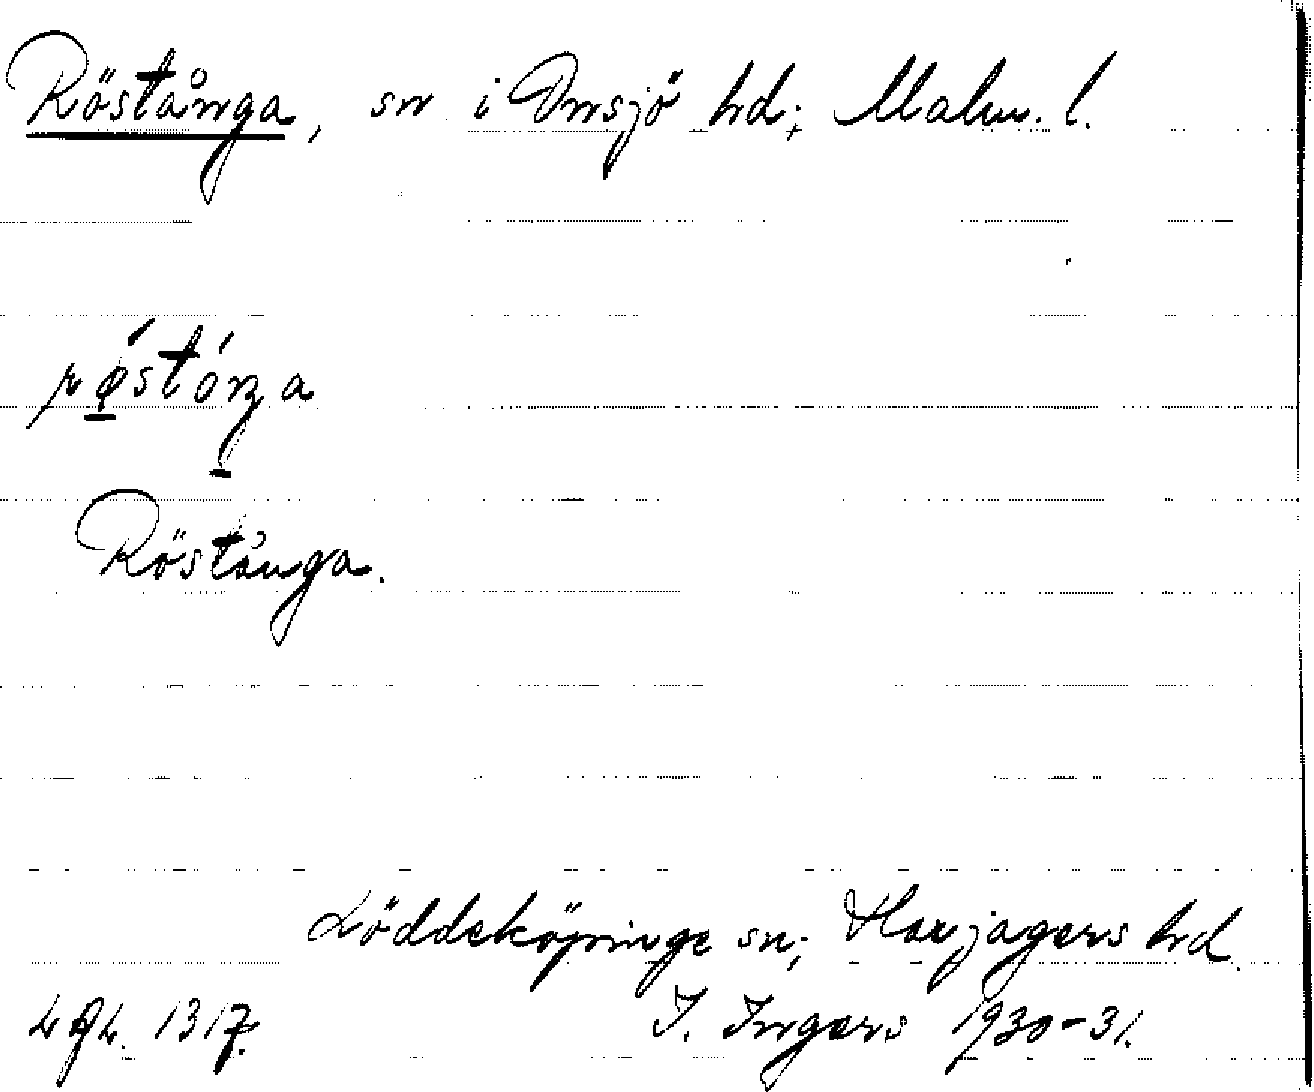 Röstånga, sn i Onsjö hd; Malm. l.
Röstånga.
Löddeköpinge sn; Harjagers hd.
1317. I. Ingers 1930-31.